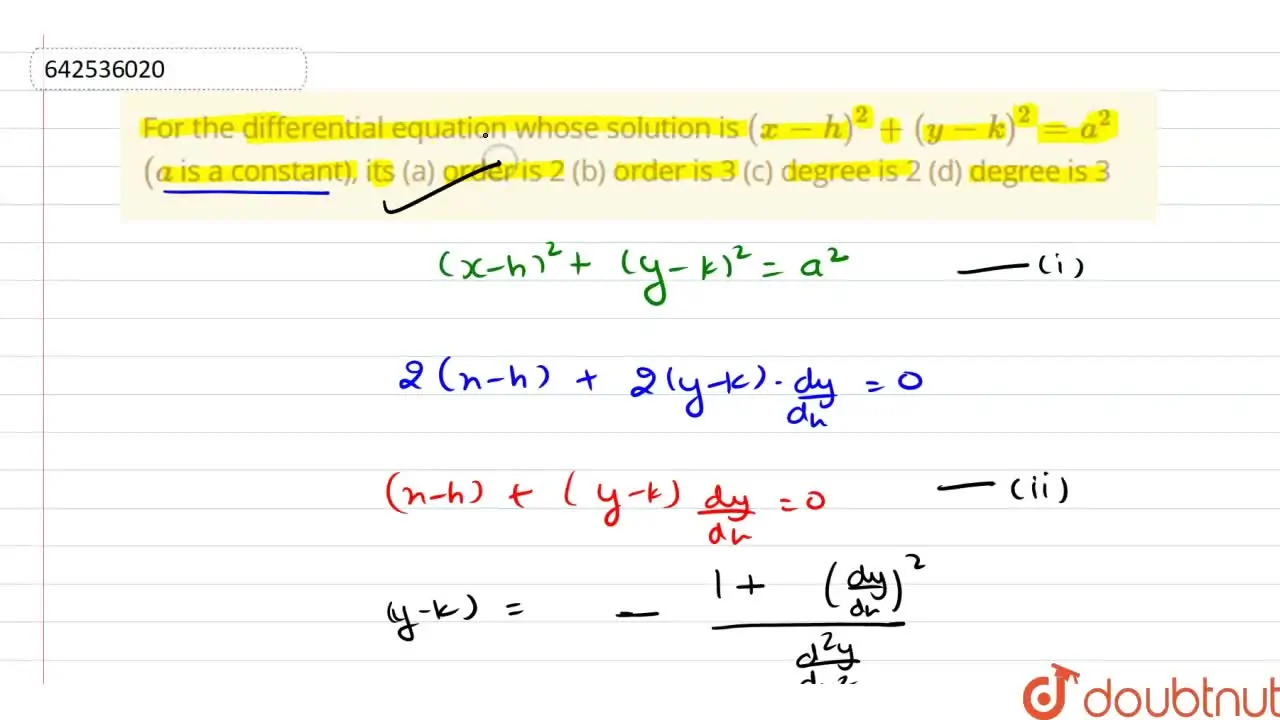 642536020
For the differential equation whose solution is (x − h)² + (y − k)² = a²
(a is a constant), its (a) order is 2 (b) order is 3 (c) degree is 2 (d) degree is 3
(x-h)² + (y-k)² = a² —(i)
2(x-h) + 2(y-k) · dy/dx = 0
(x-h) + (y-k) dy/dx = 0 —(ii)
(y-k) = − (1 + (dy/dx)²) / (d²y/dx²)
doubtnut